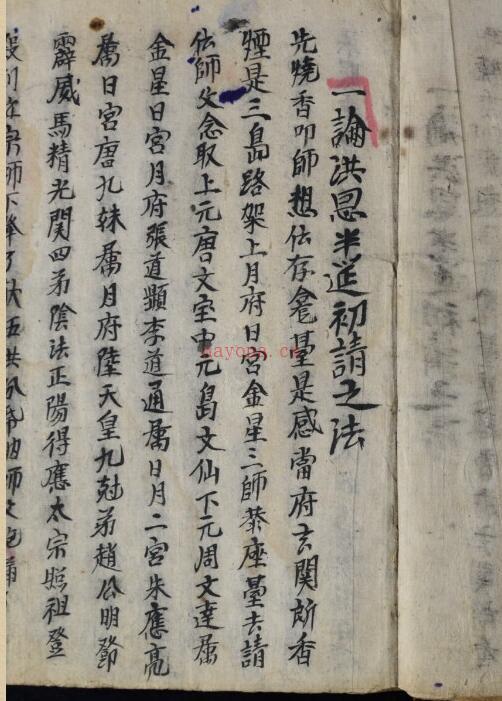 一論洪恩半送初請之法
先燒香叩師想仏存龕臺是感當府玄関所香
煙是三島路架上月府日宮金星三師恭座臺去請
仏師父念取上元唐文宝中元島文仙下元周文達属
金星日宮月府張道顯李道通属日月二宮朱應亮
属日宮唐九妹属月府陸天皇九弟趙公明鄧
霹威馬精光関四弟陰法正陽得應太宗照祖登
宗師下拳了伏五洪師父